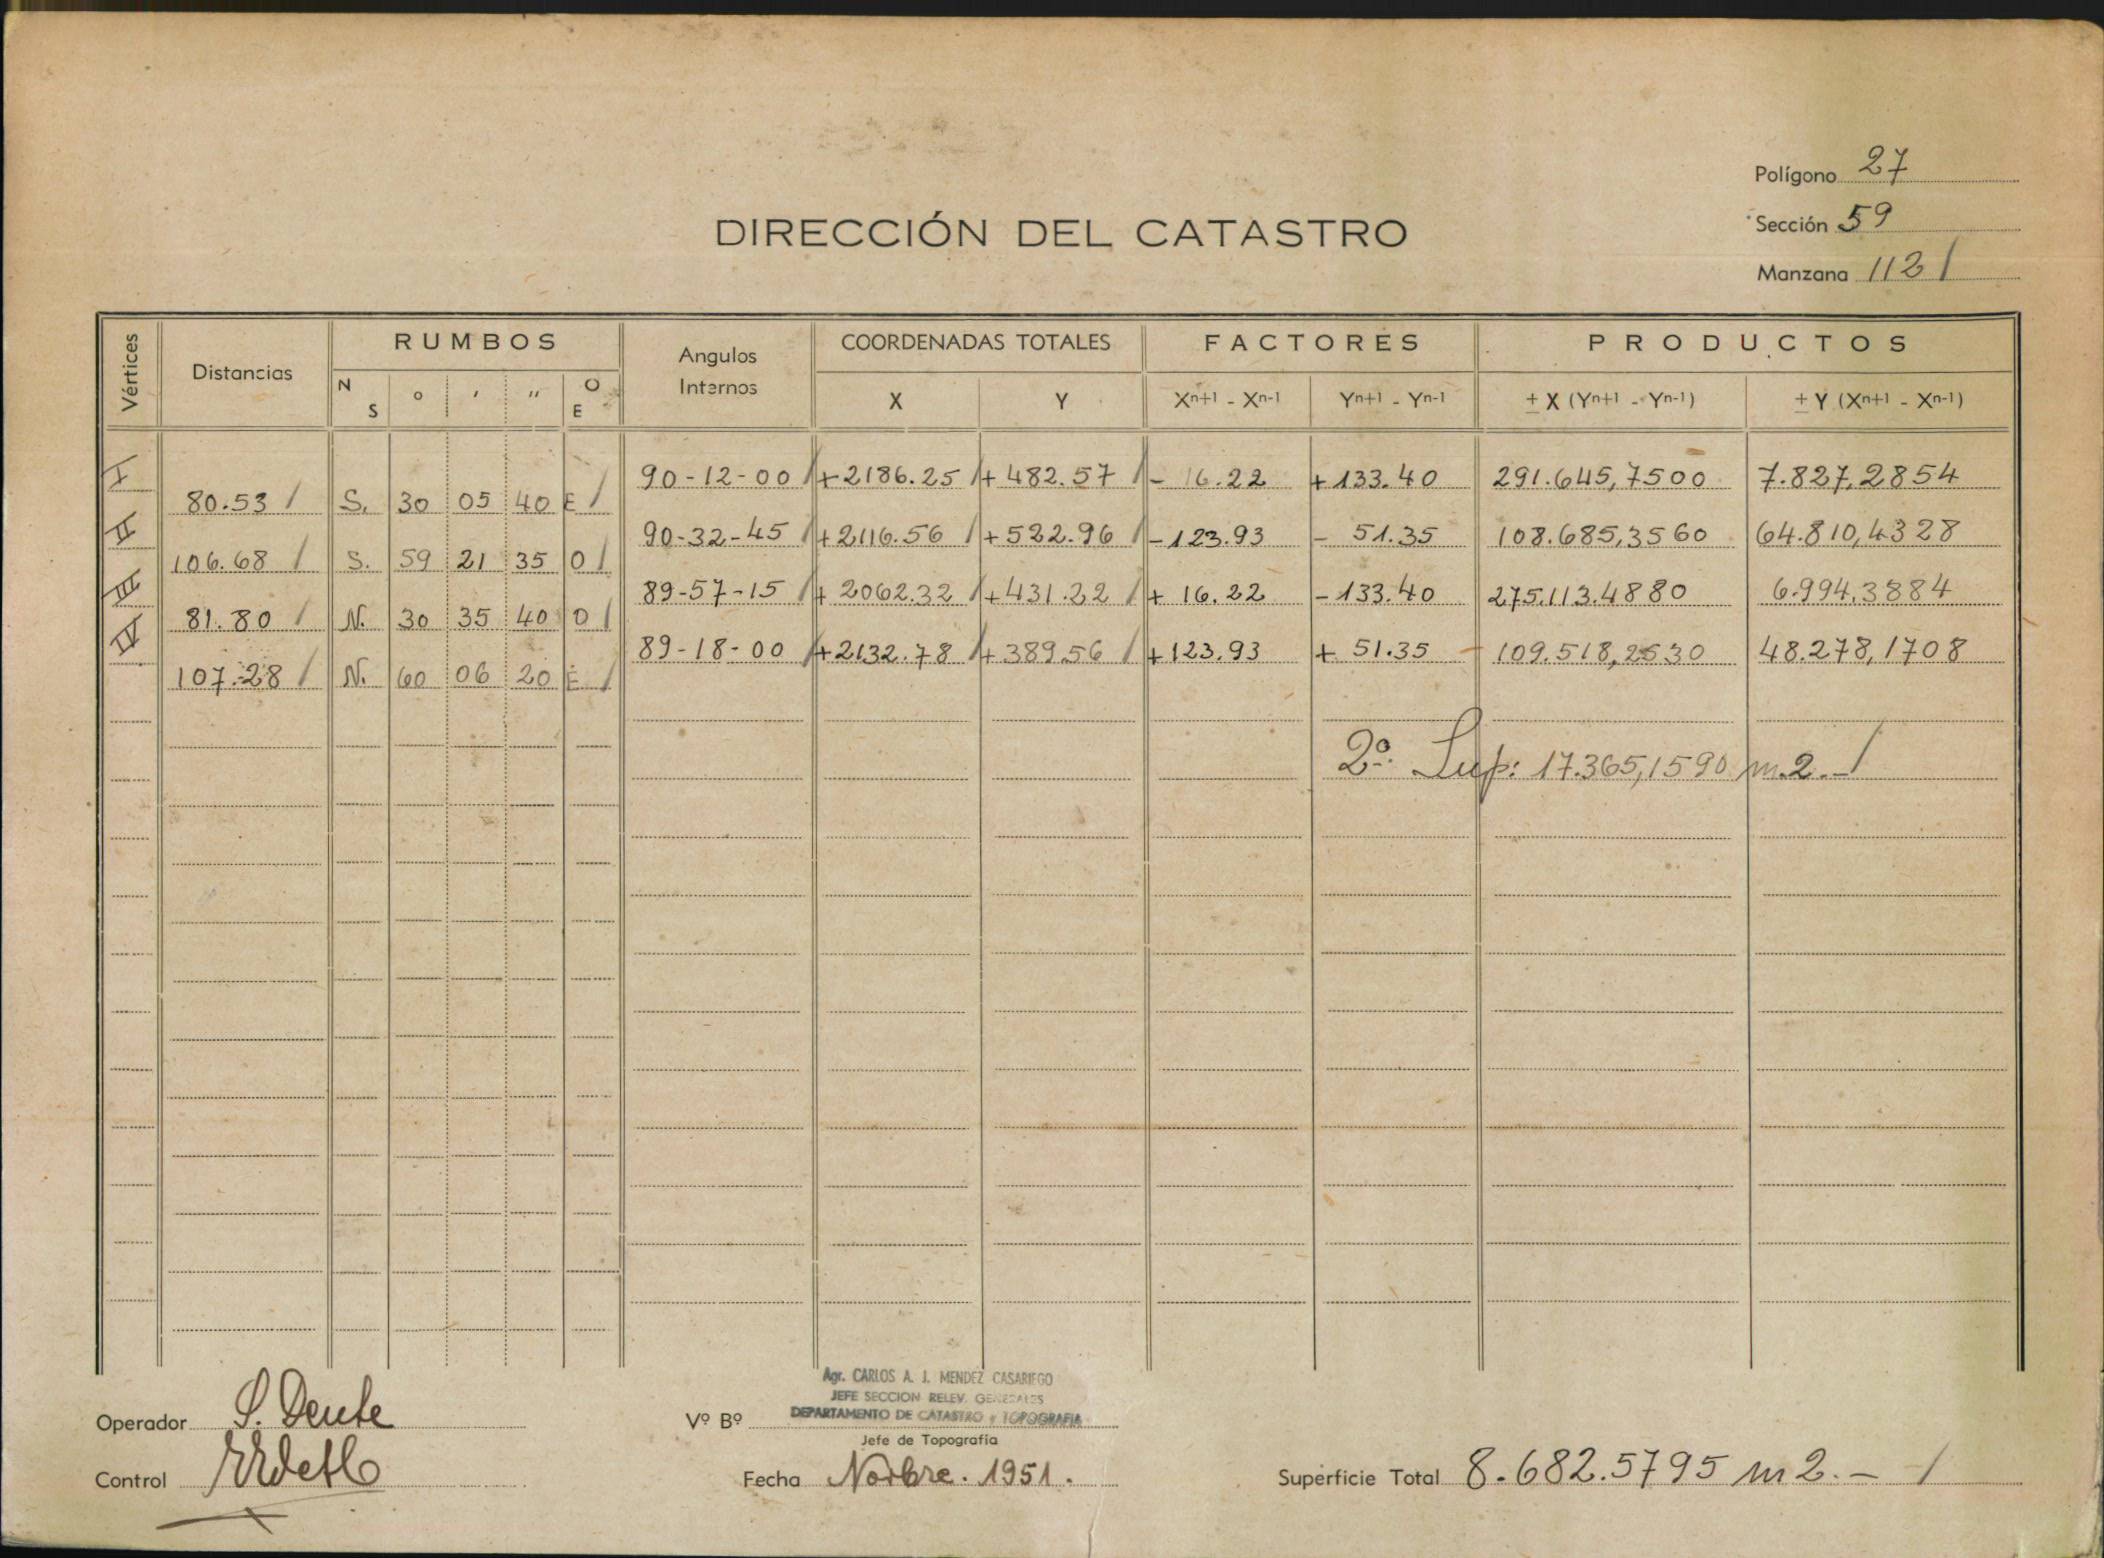 Polígono 27
Sección 59
Manzana 112 /
DIRECCIÓN DEL CATASTRO
Vértices Distancias RUMBOS Angulos Internos COORDENADAS TOTALES FACTORES PRODUCTOS
N S ° ' " O E X Y Xn+1 - Xn-1 Yn+1 - Yn-1 ± X (Yn+1 - Yn-1) ± Y (Xn+1 - Xn-1)
I 90-12-00 / +2186.25 / +482.57 / - 16.22 +133.40 291.645,7500 7.827,2854
80.53 / S. 30 05 40 E /
II 90-32-45 / +2116.56 / +522.96 / -123.93 - 51.35 108.685,3560 64.810,4328
106.68 / S. 59 21 35 O /
III 89-57-15 / + 2062.32 / +431.22 / + 16.22 -133.40 275.113.4880 6.994,3884
81.80 / N. 30 35 40 O /
IV 89-18-00 / +2132.78 / +389.56 / +123.93 + 51.35 109.518,2530 48.278,1708
107.28 / N. 60 06 20 E /
2º. Sup: 17.365,1590 m.2.- /
Agr. CARLOS A. J. MENDEZ CASARIEGO
JEFE SECCION RELEV. GENERALES
DEPARTAMENTO DE CATASTRO y TOPOGRAFIA
Operador S. Dente Vº Bº
Jefe de Topografía
Control Fecha Novbre. 1951. Superficie Total 8.682.5795 m2.- /